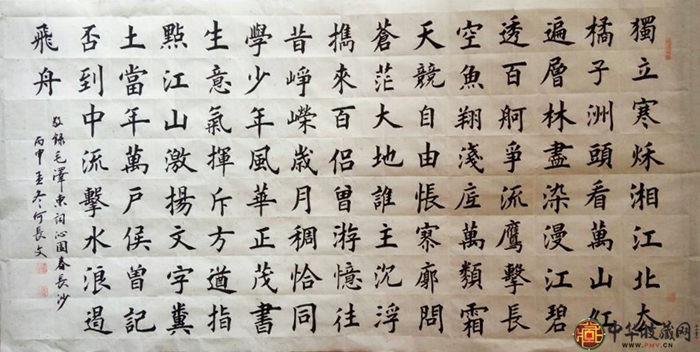 獨立寒秌湘江北去
橘子洲頭看萬山紅
遍層林盡染漫江碧
透百舸爭流鷹擊長
空魚翔淺底萬類霜
天競自由悵寥廓問
蒼茫大地誰主沉浮
擕來百侶曾游憶往
昔崢嶸歲月稠恰同
學少年風華正茂書
生意氣揮斥方遒指
點江山激揚文字糞
土當年萬戶侯曾記
否到中流擊水浪遏
飛舟
敬錄毛澤東詞沁园春長沙
丙申孟冬何長文
中华收藏网
WWW.PMV.CN